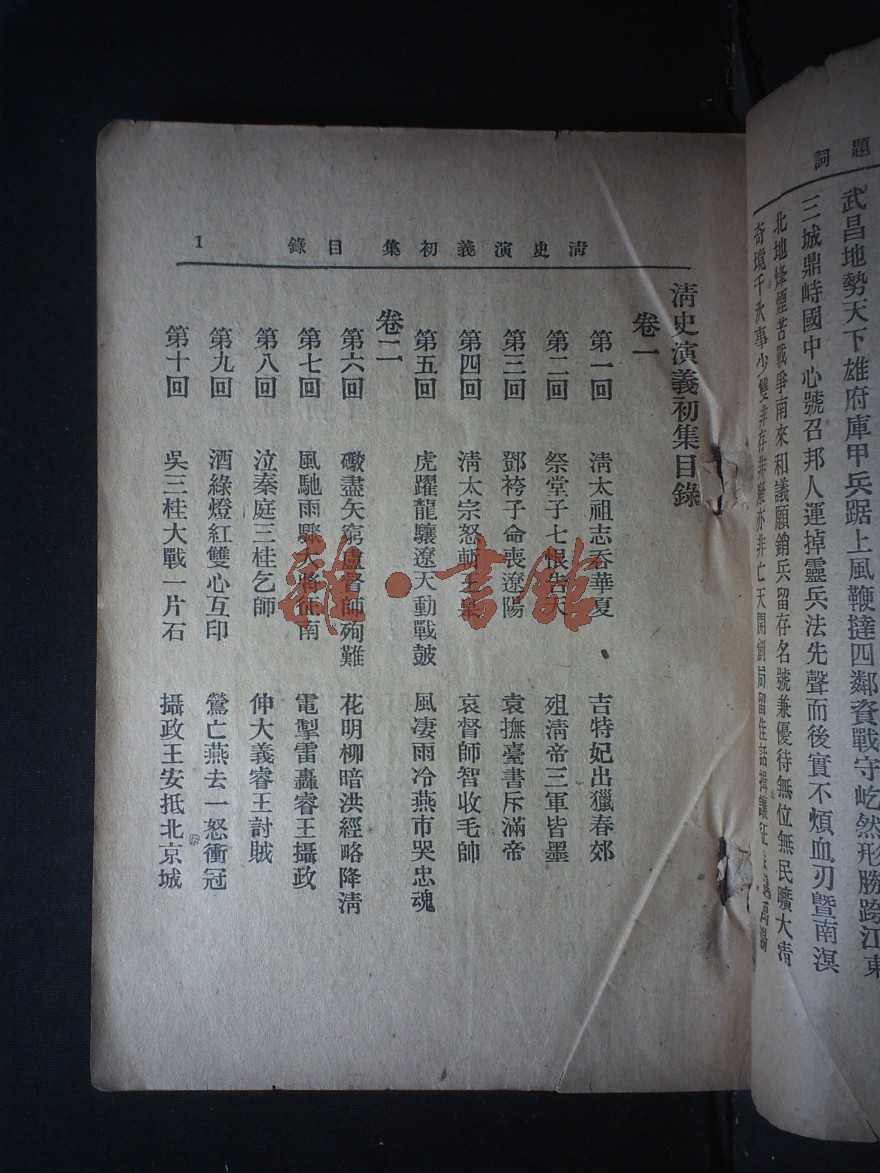 題詞
武昌地勢天下雄府庫甲兵踞上風鞭撻四鄰資戰守屹然形勝跨江東
三城鼎峙國中心號召邦人運掉靈兵法先聲而後實不煩血刃暨南溟
北地烽煙苦戰爭南來和議願銷兵留存名號兼優待無位無民曠大清
奇境千秋事少雙非存非廢亦非亡天開創局留佳話揖讓征
清史演義初集 目錄 1
清史演義初集目錄
卷一
第一回 清太祖志吞華夏 吉特妃出獵春郊
第二回 祭堂子七恨告天 殂清帝三軍皆墨
第三回 鄧袴子命喪遼陽 袁撫臺書斥滿帝
第四回 清太宗怒斬王 哀督師智收毛帥
第五回 虎躍龍驤遼天動戰鼓 風凄雨冷燕市哭忠魂
卷二
第六回 礮盡矢窮盧督師殉難 花明柳暗洪經略降清
第七回 風馳雨驟大將征南 電掣雷轟睿王攝政
第八回 泣秦庭三桂乞師 伸大義睿王討賊
第九回 酒綠燈紅雙心互印 鶯亡燕去一怒衝冠
第十回 吳三桂大戰一片石 攝政王安抵北京城
雜·書館